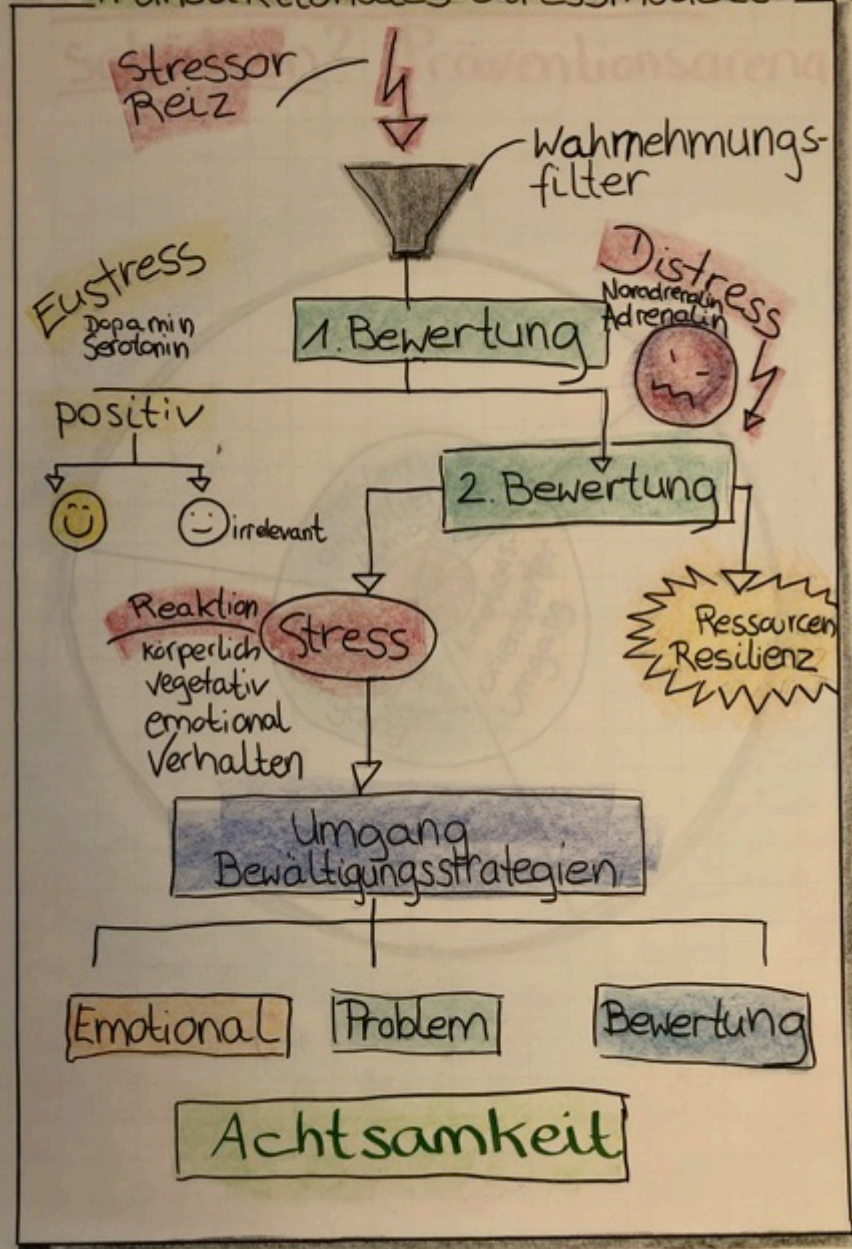 Transaktionales Stressmodell
Stressor
Reiz
Wahrnehmungs-
filter
Eustress
Dopamin
Serotonin
Distress
Noradrenalin
Adrenalin
1. Bewertung
positiv
irrelevant
2. Bewertung
Reaktion
körperlich
vegetativ
emotional
Verhalten
Stress
Ressourcen
Resilienz
Umgang
Bewältigungsstrategien
Emotional
Problem
Bewertung
Achtsamkeit